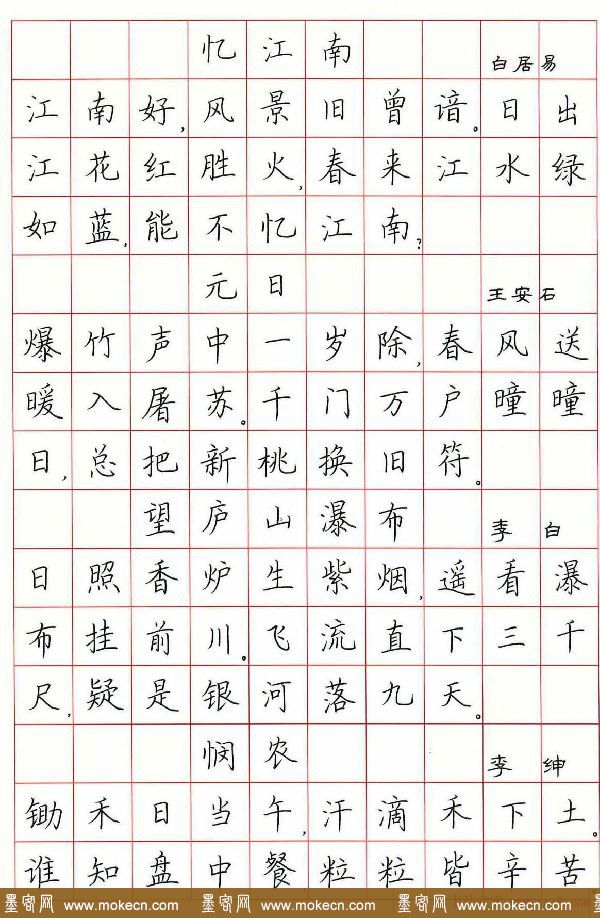 忆江南 白居易
江南好,风景旧曾谙。日出
江花红胜火,春来江水绿
如蓝,能不忆江南?
元日 王安石
爆竹声中一岁除,春风送
暖入屠苏。千门万户曈曈
日,总把新桃换旧符。
望庐山瀑布 李白
日照香炉生紫烟,遥看瀑
布挂前川。飞流直下三千
尺,疑是银河落九天。
悯农 李绅
锄禾日当午,汗滴禾下土。
谁知盘中餐,粒粒皆辛苦
墨客网 www.mokecn.com 墨客网 www.mokecn.com 墨客网 www.mokecn.com